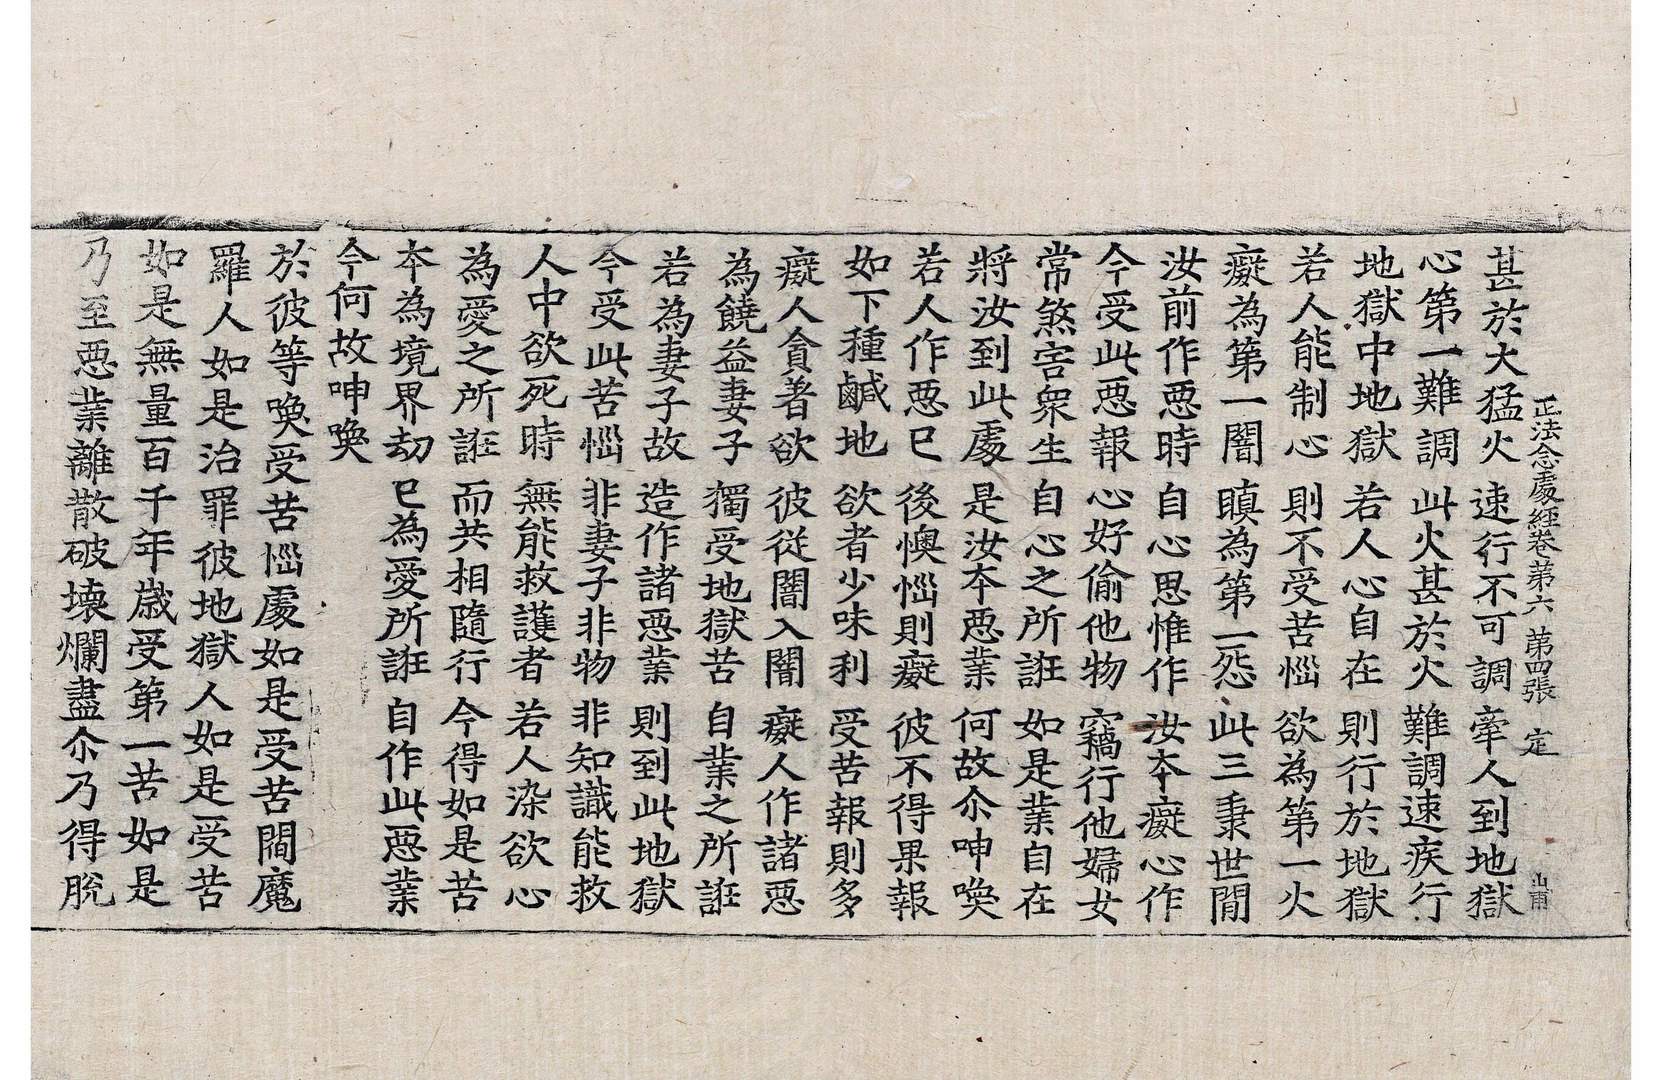 正法念處經卷第六　第四張　定　山甫
甚於大猛火　速行不可調　牽人到地獄
心第一難調　此火甚於火　難調速疾行
地獄中地獄　若人心自在　則行於地獄
若人能制心　則不受苦惱　欲為第一火
癡為第一闇　瞋為第一怨　此三秉世間
汝前作惡時　自心思惟作　汝本癡心作
今受此惡報　心好偷他物　竊行他婦女
常煞害衆生　自心之所誑　如是業自在
將汝到此處　是汝本惡業　何故尒呻喚
若人作惡已　後懊惱則癡　彼不得果報
如下種鹹地　欲者少味利　受苦報則多
癡人貪著欲　彼從闇入闇　癡人作諸惡
為饒益妻子　獨受地獄苦　自業之所誑
若為妻子故　造作諸惡業　則到此地獄
今受此苦惱　非妻子非物　非知識能救
人中欲死時　無能救護者　若人染欲心
為愛之所誑　而共相隨行　今得如是苦
本為境界劫　已為愛所誑　自作此惡業
今何故呻喚
於彼等喚受苦惱處如是受苦閻魔
羅人如是治罪彼地獄人如是受苦
如是無量百千年歲受第一苦如是
乃至惡業離散破壞爛盡尒乃得脫